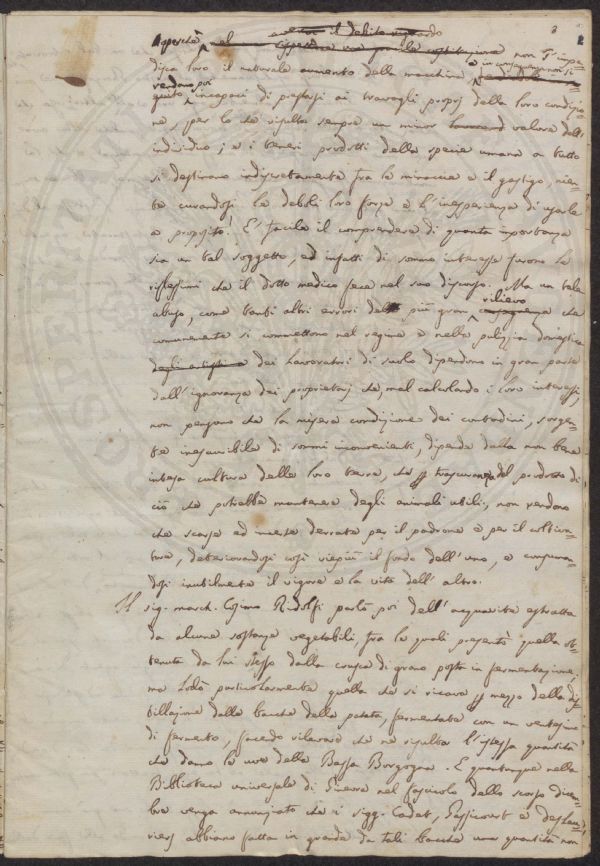 2
aver il debito riguardo
Aspettare una giusta costituzione non s'impe=
disca loro il naturale aumento della macchina e in conseguenza non si
rendano poi
incapaci di prestarsi ai travagli proprj della loro condizio
ne, per lo che risulta sempre un minor valore dell'
individuo; e i teneri prodotti della specie umana a tutto
si destinano indiscretamente fra la minaccia e il gastigo, nien=
te curandosi la deboli loro forza e l'inesperienza di usarla
a proposito! E' facile il comprendere di quanta importanza
sia un tal soggetto, ed infatti di sommo interesse furono le
riflessioni che il dotto medico fece nel suo discorso. Ma un tale
abuso, come tanti altri errori del più gran rilievo che
comunemente si commettono nel regime e nella pulizzia domestica
degli artisti e dei lavoratori di suolo dipendono in gran parte
dall'ignoranza dei proprietarj che, mal calcolando i loro interessi,
non pensano che la misera condizione dei contadini, sorgen=
te inesauribile di sommi inconvenienti, dipende dalla non bene
intesa cultura delle loro terre, che trascuranza del prodotto di
ciò che potrebbe mantenere degli animali utili, non rendono
che scarse ed incerte derrate per il padrone e per il coltiva=
tore, deteriorandosi così viepiù il fondo dell'uno, e consuman=
dosi inutilmente il vigore e la vita dell'altro.
Il sig. march. Cosimo Ridolfi parlò poi dell'acquavite estratta
da alcune sostanze vegetabili fra le quali presentò quella ot=
tenuta da lui stesso dalla crusca di grano posta in fermentazione;
ma lodò particolarmente quella che si ricava p mezzo della di=
stillazione dalle bacche della patata, fermentate con un ventesimo
di fermento, facendo rilevare che ne risulta l'istessa quantità
che danno le uve della Bassa Borgogna. E quantunque nella
Biblioteca universale di Ginevra nel fascicolo dello scorso dicem=
bre venga annunziato che i sigg. Cadet, Gassicourt e Deslau=
riers abbiano fatta in grande da tali bacche una quantità non